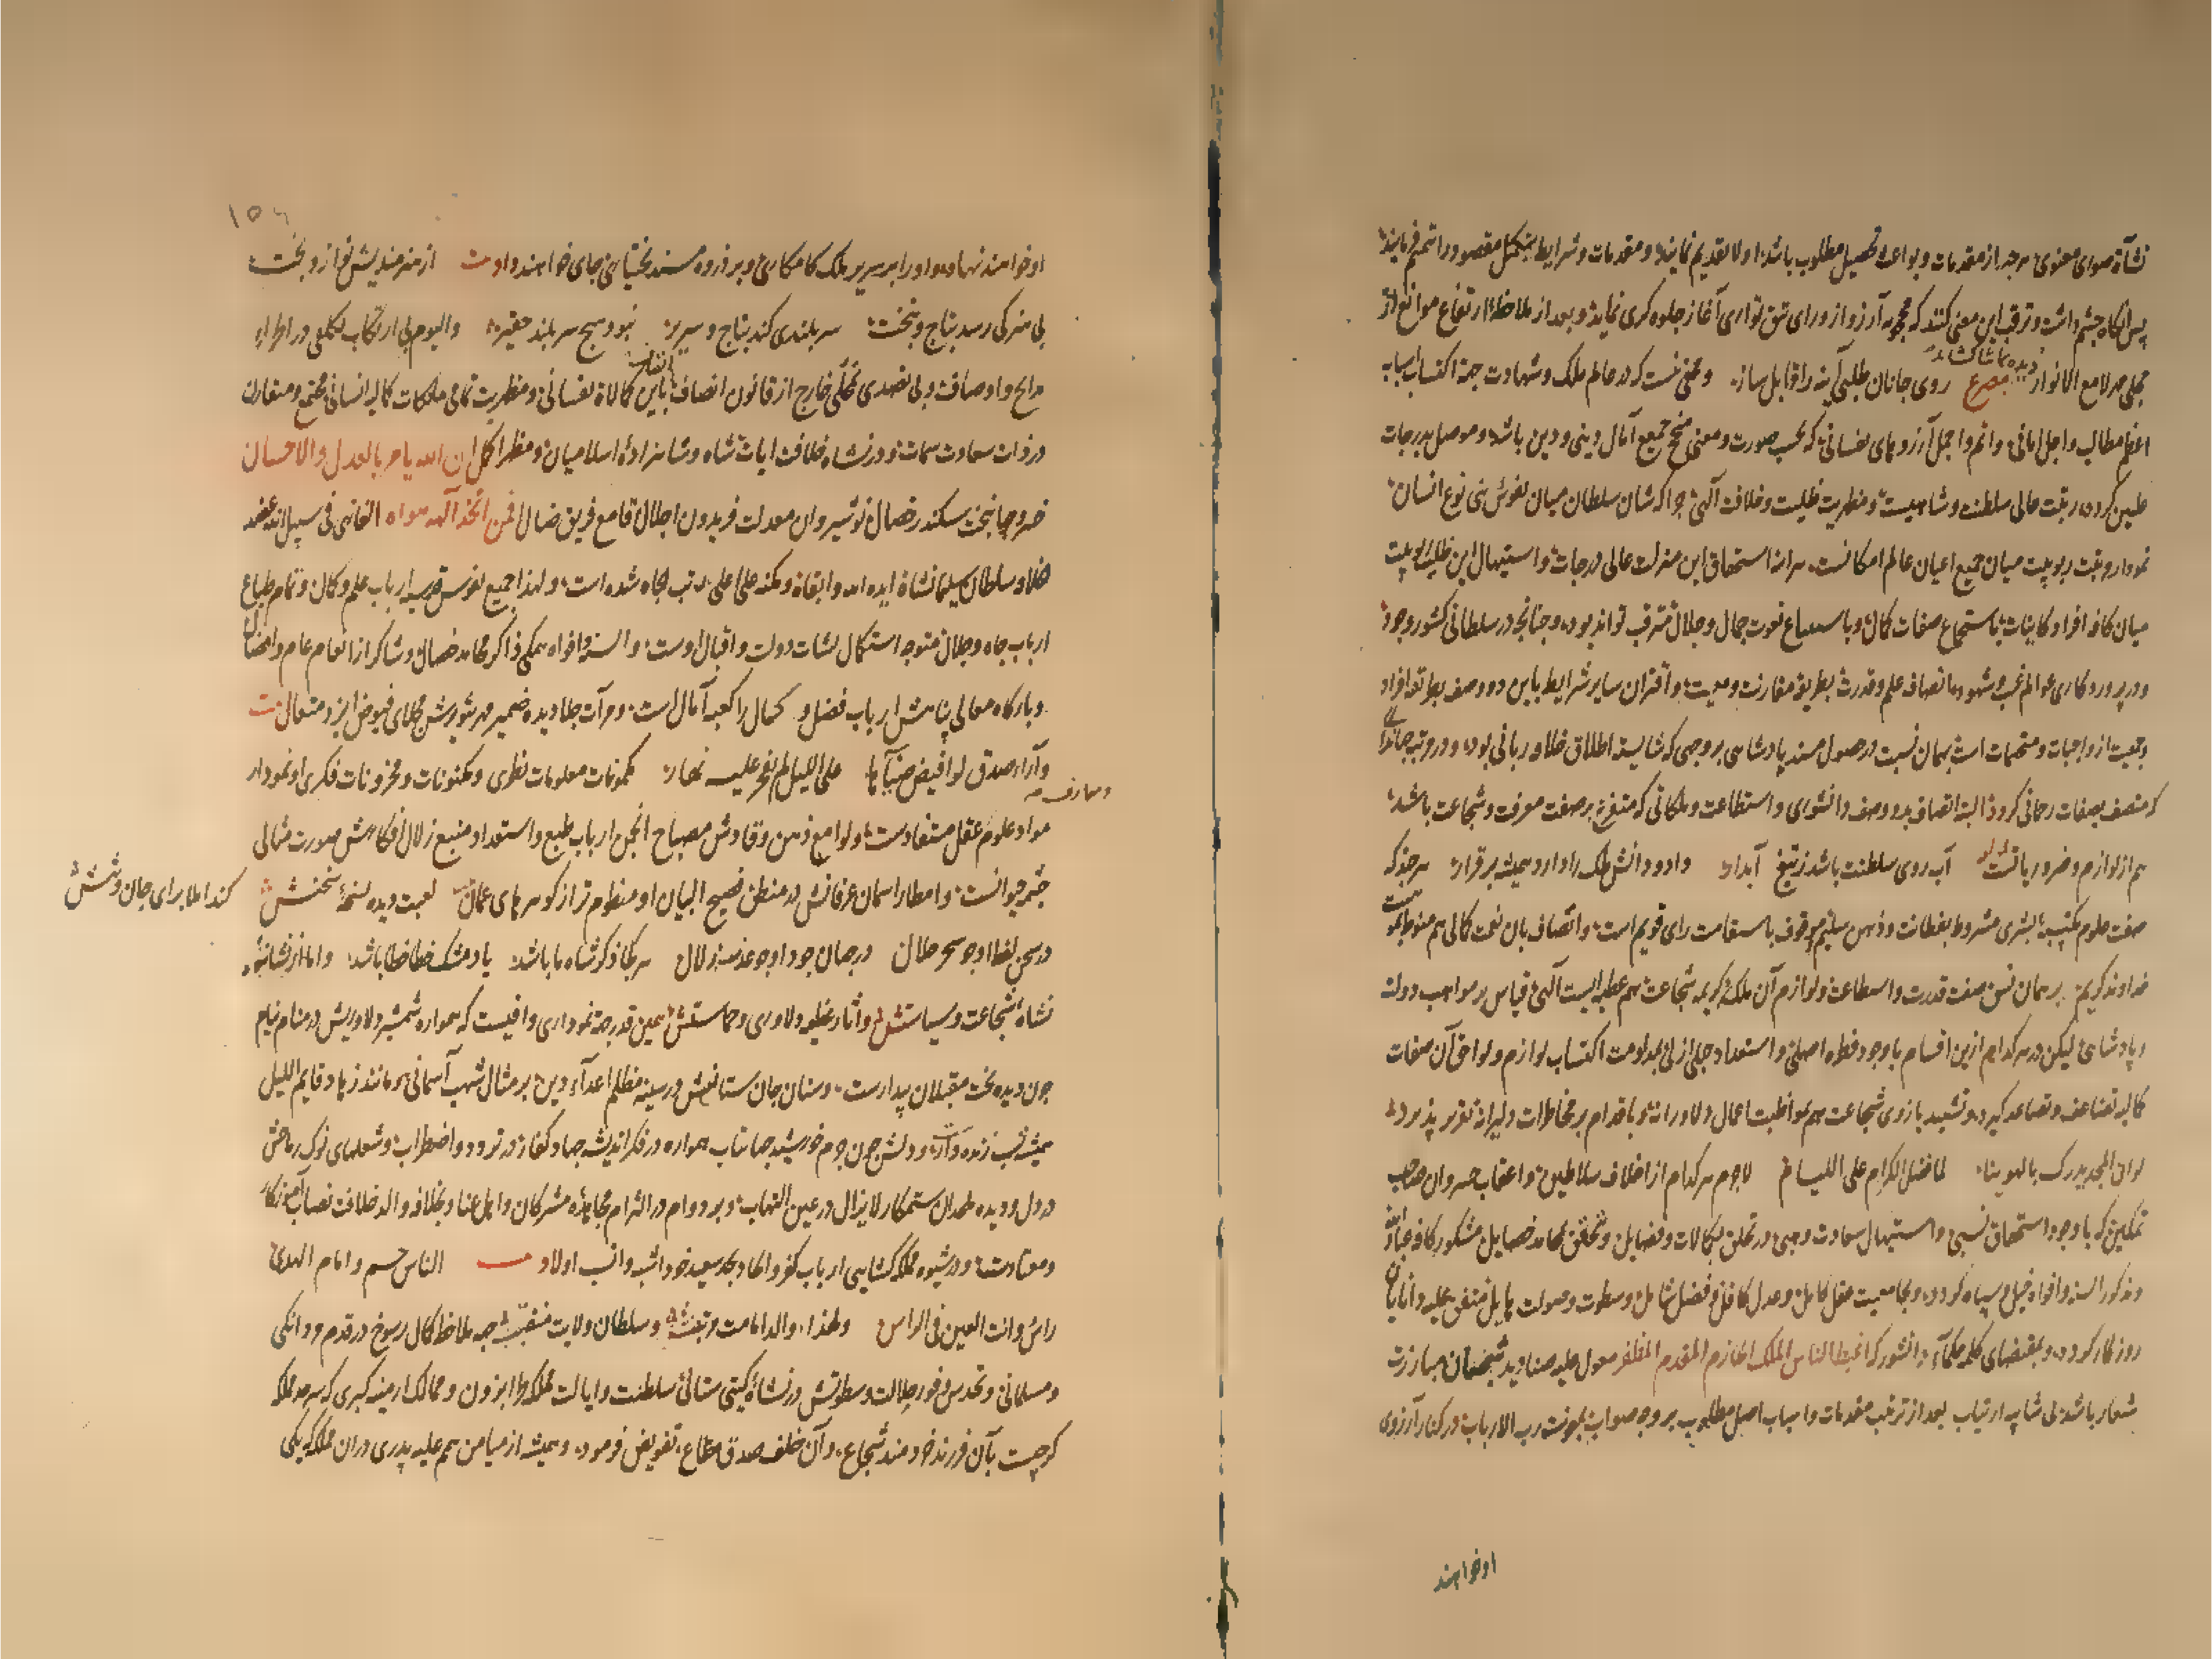 نشأة صوری معنوی هر چه از مقدمات و بواعث تحصیل مطلوب باشد اولا تقدیم نمایند و مقدمات و شرایط مقصود را فرمایند
پس آنگاه چشم داشت و ترقب این معنی کنند که محبوبه آرزو از ورای تتق تواری آغاز جلوه کری نماید و بعد از ملاحظه ارتفاع موانع از
الانوار دیده تماشا کشاید مصرع روی جانان طلبی آینه را قابل ساز و مخفی نیست که در عالم ملک و شهادت جهة اکتساب اسباب
اعظم مطالب و اجل امانی و اتم و اجمل آرزوهای نفسانی که بحسب صورت و معنی منتج جمیع آمال دینی و دین باشد و موصل بدرجات
علیین کردد رتبت عالی سلطنت و شاهیست و مظهریت ظلیت و خلافت آلهی چرا که شان سلطان میان نفوس بنی نوع انسان
نمودار رتبت ربوبیت میان جمیع اعیان عالم امکانست هر آینه استحقاق این منزلت عالی درجات و استیهال این
میان کافه افراد کاینات باستجماع صفات کمال و نعوت جمال و جلال مترقب تواند بود و چنانچه در سلطانی کشور وجود
و در پروردکاری عوالم غیب و شهود اتصاف علم و قدرت بطریق مقارنت و معیت و اقتران سایر شرایط باین دو وصف
از واجبات و متحتمات است بهمان نسبت در حصول مسند پادشاهی بر وجهی که شایسته اطلاق ظلاه ربانی بود و در رتبه جهانبانی
که متصف بصفات رحمانی کردد البته اتصاف بدو وصف دانشوری و استطاعت و ملکاتی که متفرع بر صفت معرفت و شجاعت باشد
هم از لوازم و ضروریاتست آب روی سلطنت باشد ز تیغ آبدار داد و دانش ملک را دارد همیشه برقرار هر چند که
صفت علوم بشری مشروط بفطانت و ذهن سلیم و موقوف باستقامت رای قویم است و اتصاف بان نعت کمالی هم منوط
خداوند کریم بر همان نسق صفت قدرت و استطاعت و لوازم آن ملکه کریمه شجاعت هم عطیه ایست آلهی و قیاس بر مواهب دولت
و پادشاهی لیکن در هر کدام ازین اقسام با وجود فطره اصلی و استعداد جبلی ازلی بمداومت اکتساب لوازم و لواحق آن صفات
کمالیه تضاعف و تصاعد کیرد و تشیید بازوی شجاعت هم بمواظبت اعمال دلاورانه و باقدام بر مخاطرات دلیرانه تقرر پذیرد
لو ان المجد یدرک بالهوینا لما فضل الکرام علی اللیام لاجرم هر کدام از اخلاف سلاطین و اعقاب خسروان صاحب
تمکین که با وجود استحقاق نسبی و استیهال سعادت وهبی در تخلق بکمالات و فضایل و تحقق بمحامد خصایل مشکور کافه عباد الله
و مذکور السنه و افواه خیل و سپاه کردد و بجامعیت عقل کامل و عدل کافل و فضل شامل و سطوت و صولت هایل متفق علیه دانایان
روزکار کردد و بمقتضای کلمه حکماء دانشور که اغبط الناس الملک الحازم المقدم المظفر معول علیه صنادید شجعان مبارزت
شعار باشد بی شایبه ارتیاب بعد از ترتب مقدمات و اسباب اصل مطلوب بر وجه صواب بمعونت رب الارباب در کنار آرزوی
اوخواهند
۱۵۶
او خواهند نهاد و او را بر سریر ملک کامکاری و بر ذروه مسند بختیاری جای خواهند داد بیت از هنر مندیش نوازد بخت
بی هنر کی رسد بتاج و بتخت سربلندی کند بتاج و سریر نبود هیچ سربلند حقیر والیوم بی ارتکاب تکلفی در اطراء
مدایح و اوصاف و بی تصدی تمحلی خارج از قانون انصاف اتصاف باین کمالات نفسانی و مظهریت تمامی ملکات کمالیه انسانی مجتمع و مقارن
در ذات سعادت سمات و در نشاء خلافت ایات شاه و شاهزاده اسلامیان و مظهر اکمل ان الله یامر بالعدل والاحسان
خسرو جوانبخت سکندر خصال نوشیروان معدلت فریدون اجلال قامع فریق ضلال افمن اتخذ آلهه هواه الغازی فی سبیل الله
سلطان سلیمانشاه ایده الله وابقاه ومکنه علی اعلی مراتب الجاه شده است و لهذا جمیع نفوس قدسیه ارباب علم و کمال و تمام طباع
ارباب جاه و جلال متوجه استکمال نشات دولت و اقبال اوست و السنه و افواه همکی ذاکر محامد خصال و شاکر از انعام عام و افضال
و بارکاه معالی پناهش ارباب فضل و کمال را کعبه آمال است و مرآت جلا دیده ضمیر مهر تنویرش مجلای فیوض ایزد متعال بیت
وآراء صدق لو افیض ضیآءها علی اللیل لم یخفر علیه نهار مکنونات معلومات نظری و مکنونات و مخزونات فکری او نمودار
و معارف
مواد علوم عقل مستفادست و لوامع ذهن وقادش مصباح انجمن ارباب طبع و استعداد منبع زلال افکارش صورت مثالی
چشمه حیوانست و امطار اسمان عرفانش در منطق فصیح البیان او منظوم تر از کوهرهای عمان لعبت دیده نسخهٔ سخنش
کند املا برای جان و تنش
سحر حلال در جهان جود او چو عذب زلال هر کجا ذکر شاه ما باشد یاد مشک خطا خطا باشد و اما
نشاه شجاعت و سیاستش و آثار غلظه دلاوری و حماستش همین قدر جهة نموداری وافیست که همواره شمشیر دلاوریش در منام نیام
چون دیده بخت مقبلان بیدارست و سنان جان ستانش در سینه مظلم اعدآء دین بر مثال شهب آسمانی و مانند زهاد قایم اللیل
همیشه شب زنده دارست و دلش چون جرم خورشید جهانتاب همواره در فکر اندیشه جهاد کفار در تردد و اضطراب و شعلهای نوک رماحش
در دل و دیده ملحدان ستمکار لایزال در عین التهاب و بر دوام در التزام مجاهده مشرکان و اهل عناد بخلافه والد خلافت نصاب
و معتادست و در شیوه مملکت کشایی ارباب کفر و الحاد بجد سعید خود اشبه و انسب اولاد بیت الناس جسم وامام الهدی
راس وانت العین فی الراس ولهذا والد امامت رتبتش و سلطان ولایت منقبتش جهة ملاحظه کمال رسوخ در قدم مردانکی
و مسلمانی و تحدس وفور جلالت و سطوتش در نشاهٔ کیتی ستانی سلطنت و ایالت مملکت طرابزون و ممالک ارمینه کبری که سرحد مملکت
کرجست بآن فرزند خردمند شجاع و آن خلف صدق مطاع تفویض فرمود و همیشه از میامن همم علیه پدری در آن مملکت